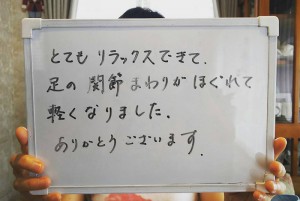 とても リラックスできて.
足の 関節 まわりが ほぐれて
軽くなりました.
ありがとうございます.